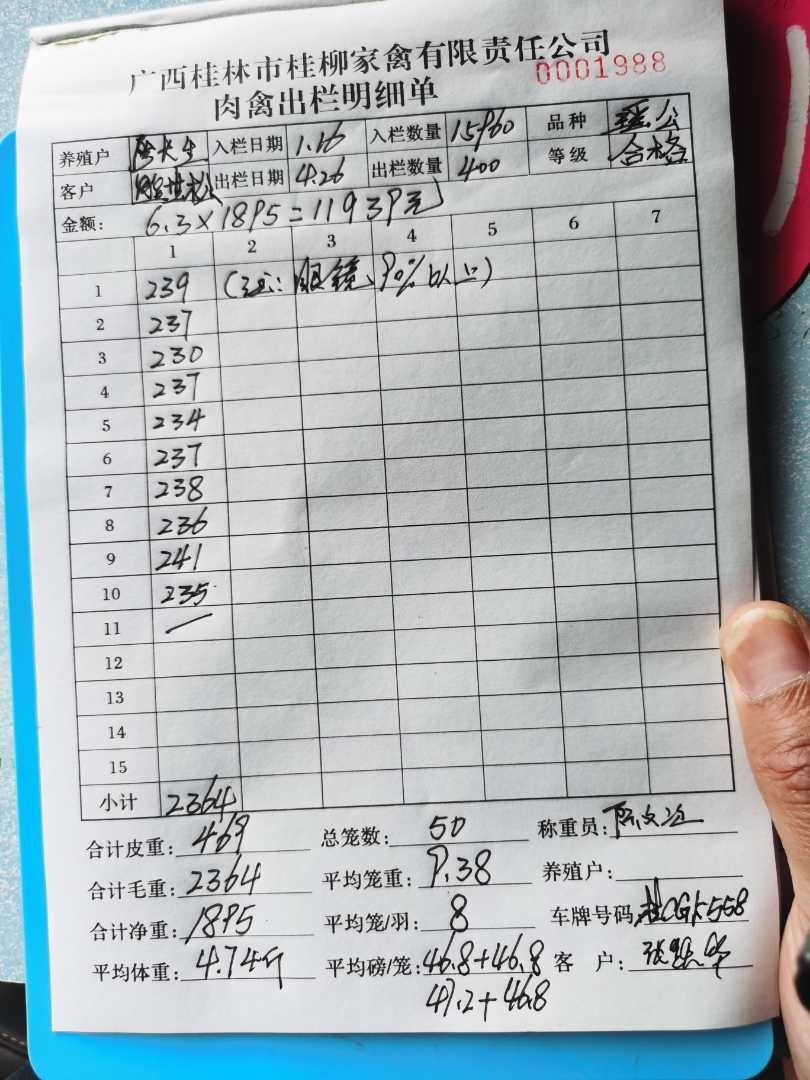 广西桂林市桂柳家禽有限责任公司
0001988
肉禽出栏明细单
养殖户 陈长生 入栏日期 1.16 入栏数量 15960 品种 瑶公
客户 出栏日期 4.26 出栏数量 400 等级 合格
金额: 6.3×1895=11939元
1 2 3 4 5 6 7
1 239 (注:眼镜、90%以上)
2 237
3 230
4 237
5 234
6 237
7 238
8 236
9 241
10 235
11 —
12
13
14
15
小计 2364
合计皮重: 469 总笼数: 50 称重员:
合计毛重: 2364 平均笼重: 9.38 养殖户:
合计净重: 1895 平均笼/羽: 8 车牌号码: 桂CGK558
平均体重: 4.74斤 平均磅/笼: 46.8+46.8 客 户:
47.2+46.8